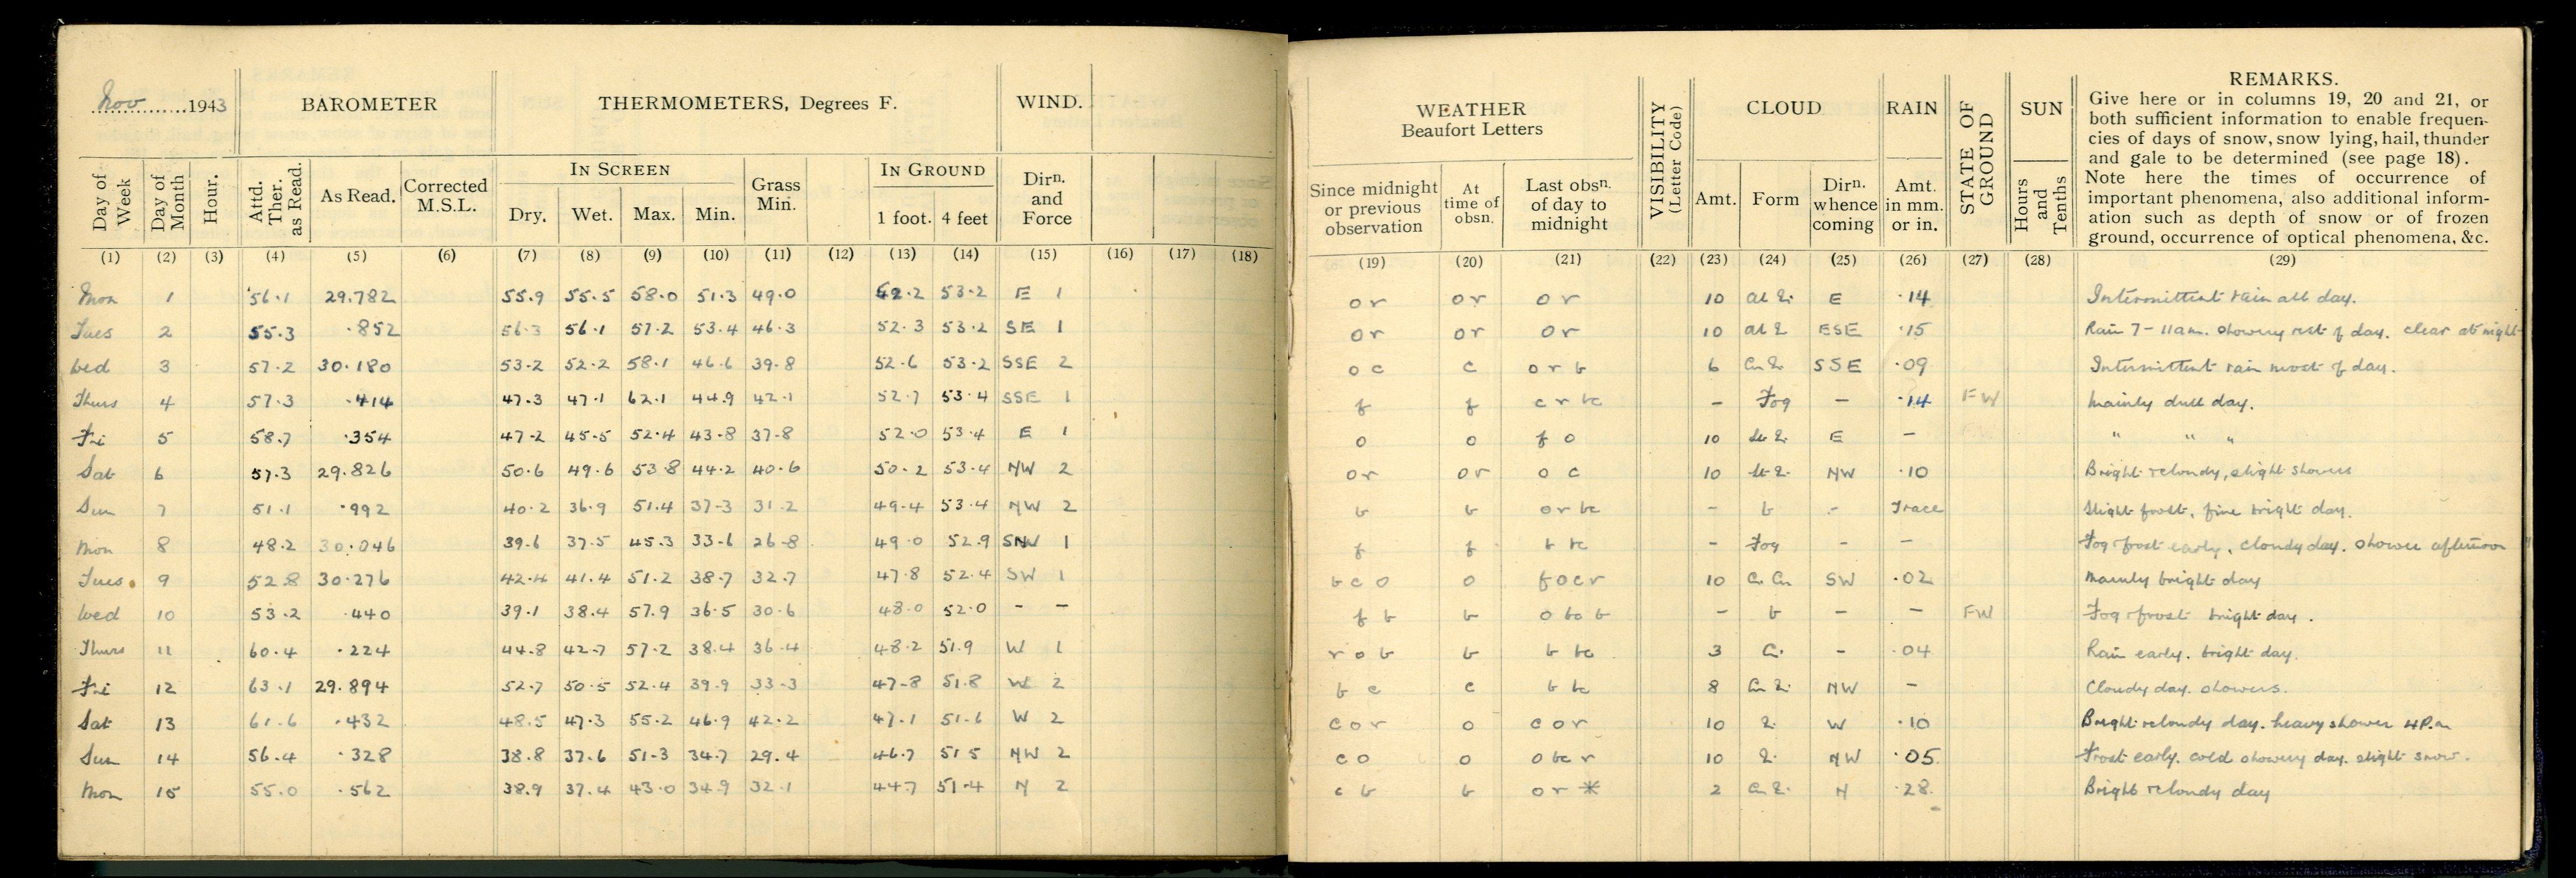 Nov 1943
BAROMETER
THERMOMETERS, Degrees F.
WIND.
Day of Week
Day of Month
Hour.
Attd. Ther. as Read.
As Read.
Corrected M.S.L.
IN SCREEN
Dry. Wet. Max. Min.
Grass Min.
IN GROUND
1 foot. 4 feet
Dirn. and Force
(1) (2) (3) (4) (5) (6) (7) (8) (9) (10) (11) (12) (13) (14) (15) (16) (17) (18)
Mon 1 56.1 29.782 55.9 55.5 58.0 51.3 49.0 52.2 53.2 E 1
Tues 2 55.3 .852 56.3 56.1 57.2 53.4 46.3 52.3 53.2 SE 1
Wed 3 57.2 30.180 53.2 52.2 58.1 46.6 39.8 52.6 53.2 SSE 2
Thurs 4 57.3 .414 47.3 47.1 62.1 44.9 42.1 52.7 53.4 SSE 1
Fri 5 58.7 .354 47.2 45.5 52.4 43.8 37.8 52.0 53.4 E 1
Sat 6 57.3 29.826 50.6 49.6 53.8 44.2 40.6 50.2 53.4 NW 2
Sun 7 51.1 .992 40.2 36.9 51.4 37.3 31.2 49.4 53.4 NW 2
Mon 8 48.2 30.046 39.6 37.5 45.3 33.6 26.8 49.0 52.9 1
Tues 9 52.8 30.276 42.4 41.4 51.2 38.7 32.7 47.8 52.4 SW 1
Wed 10 53.2 .440 39.1 38.4 57.9 36.5 30.6 48.0 52.0 - -
Thurs 11 60.4 .224 44.8 42.7 57.2 38.4 36.4 48.2 51.9 W 1
Fri 12 63.1 29.894 52.7 50.5 52.4 39.9 33.3 47.8 51.8 W 2
Sat 13 61.6 .432 48.5 47.3 55.2 46.9 42.2 47.1 51.6 W 2
Sun 14 56.4 .328 38.8 37.6 51.3 34.7 29.4 46.7 51 5 NW 2
Mon 15 55.0 .562 38.9 37.4 43.0 34.9 32.1 44.7 51.4 N 2
WEATHER
Beaufort Letters
Since midnight or previous observation
At time of obsn.
Last obsn. of day to midnight
VISIBILITY (Letter Code)
CLOUD
Amt. Form
Dirn. whence coming
RAIN
Amt. in mm. or in.
STATE OF GROUND
SUN
Hours and Tenths
REMARKS.
Give here or in columns 19, 20 and 21, or
both sufficient information to enable frequen-
cies of days of snow, snow lying, hail, thunder
and gale to be determined (see page 18).
Note here the times of occurrence of
important phenomena, also additional inform-
ation such as depth of snow or of frozen
ground, occurrence of optical phenomena, &c.
(19) (20) (21) (22) (23) (24) (25) (26) (27) (28) (29)
or or or 10 E .14 Intermittent rain all day.
or or or 10 ESE .15 Rain 7-11am. showery rest of day. clear at night
oc c orb 6 SSE .09 Intermittent rain most of day.
f f c r bc - Fog - .14 FW Mainly dull day.
o o f o 10 E - " " "
or or o c 10 NW .10 Bright & cloudy, slight showers
b b or bc - b - Trace Slight frost, fine bright day.
f f b bc - Fog - - Fog & frost early, cloudy day. shower afternoon
b c o o f o c r 10 SW .02 Mainly bright day
f b b o bc b - b - - FW Fog & frost bright day.
r o b b b bc 3 - .04 Rain early. bright day.
b c c b bc 8 NW - Cloudy day. showers.
c o r o c o r 10 W .10 Bright & cloudy day. heavy shower 4P.m
c o o o bc r 10 NW .05 Frost early. cold showery day. slight snow.
c b b o r * 2 N .28 Bright & cloudy day